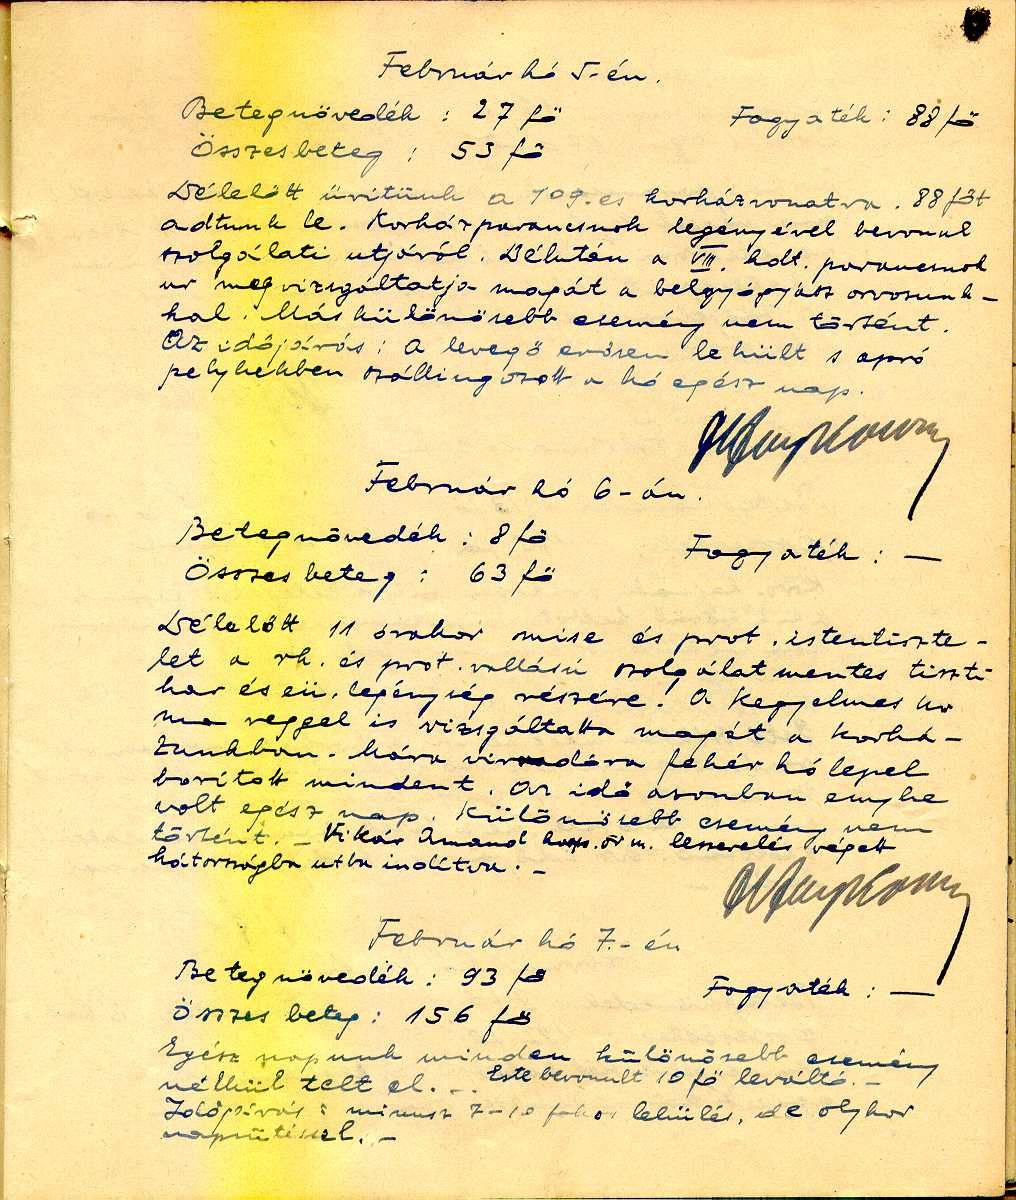 Február hó 5-én.
Betegnövedék : 27 fő Fogyaték : 88 fő
Összesbeteg : 53 fő
Délelőtt ürítünk a 109.es korházvonatra. 88 főt
adtunk le. Korházparancsnok legényével bevonul
szolgálati utjáról. Délután a VIII. hdt. parancsnok
ur megvizsgáltatja magát a belgyógyász orvosunk-
kal. Más különösebb esemény nem történt.
Az időjárás : A levegő erősen lehült s apró
pelyhekben szállingozott a hó egész nap.
Február hó 6-án.
Betegnövedék : 8 fő Fogyaték : —
Összesbeteg : 63 fő
Délelőtt 11 órakor mise és prot. istentiszte-
let a rk. és prot. vallású szolgálatmentes tiszti
kar és eü. legénység részére. A Kegyelmes ur
ma reggel is vizsgáltatta magát a korhá-
zunkban. Mára virradóra fehér hólepel
borított mindent. Az idő azonban enyhe
volt egész nap. Különösebb esemény nem
történt. - Vikár Amand őrm. leszerelés végett
hátországba utba indítva. -
Február hó 7.-én
Betegnövedék : 93 fő Fogyaték : —
Összes beteg : 156 fő
Egész napunk minden különösebb esemény
nélkül telt el. - Este bevonult 10 fő leváltó. -
Időjárás : minusz 7-10 fokos lehülés, de olykor
napsütéssel. -